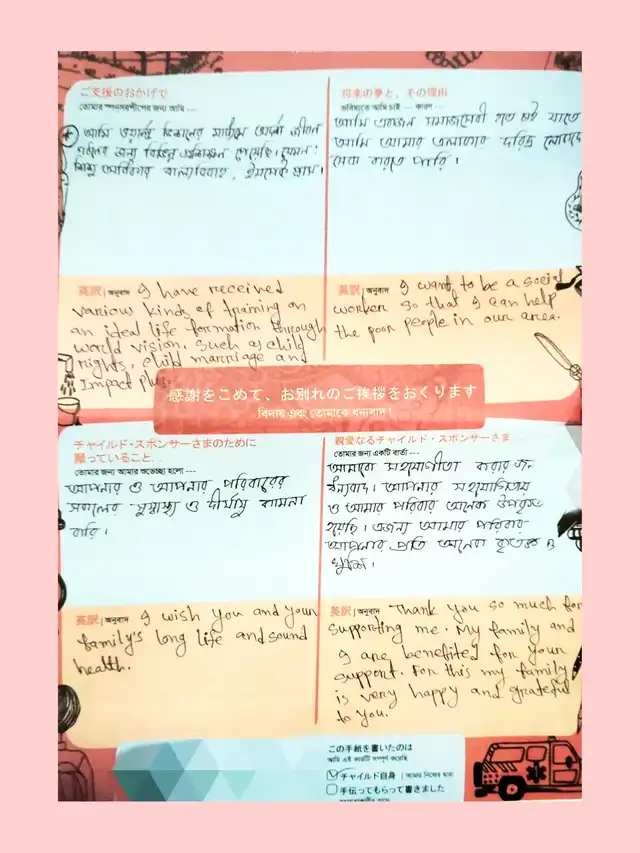 ご支援のおかげで
তোমার স্পনসরশীপের জন্য আমি ---
আমি ওয়ার্ল্ড ভিশনের মাধ্যমে আদর্শ জীবন
গঠনের জন্য বিভিন্ন প্রশিক্ষন পেয়েছি। যেমন:
শিশু অধিকার বাল্যবিবাহ, ইমপেক্ট প্লাস।
英訳 | অনুবাদ I have received
various kinds of training on
an ideal life formation through
world vision. Such as child
rights, child marriage and
Impact plus.
将来の夢と、その理由
ভবিষ্যতে আমি চাই --- কারণ ---
আমি একজন সমাজসেবী হতে চাই যাতে
আমি আমার এলাকার দরিদ্র লোকদের
সেবা করতে পারি।
英訳 | অনুবাদ I want to be a social
worker so that I can help
the poor people in our area.
感謝をこめて、お別れのご挨拶をおくります
বিদায় এবং তোমাকে ধন্যবাদ!
チャイルド・スポンサーさまのために
願っていること…
তোমার জন্য আমার শুভেচ্ছা হলো ---
আপনার ও আপনার পরিবারের
সকলের সুস্বাস্থ্য ও দীর্ঘায়ু কামনা
করি।
英訳 | অনুবাদ I wish you and your
family's long life and sound
health.
親愛なるチャイルド・スポンサーさま
তোমার জন্য একটি বার্তা ---
আমাকে সহযোগীতা করার জন্য
ধন্যবাদ। আপনার সহযোগিতায়
ও আমার পরিবার অনেক উপকৃত
হয়েছি। এজন্য আমার পরিবার
আপনার প্রতি অনেক কৃতজ্ঞ ও
খুশি।
英訳 | অনুবাদ Thank you so much for
supporting me. My family and
I are benefited for your
support. For this my family
is very happy and grateful
to you.
この手紙を書いたのは
আমি এই কার্ডটি সম্পূর্ণ করেছি
チャイルド自身 | আমার নিজের দ্বারা
手伝ってもらって書きました